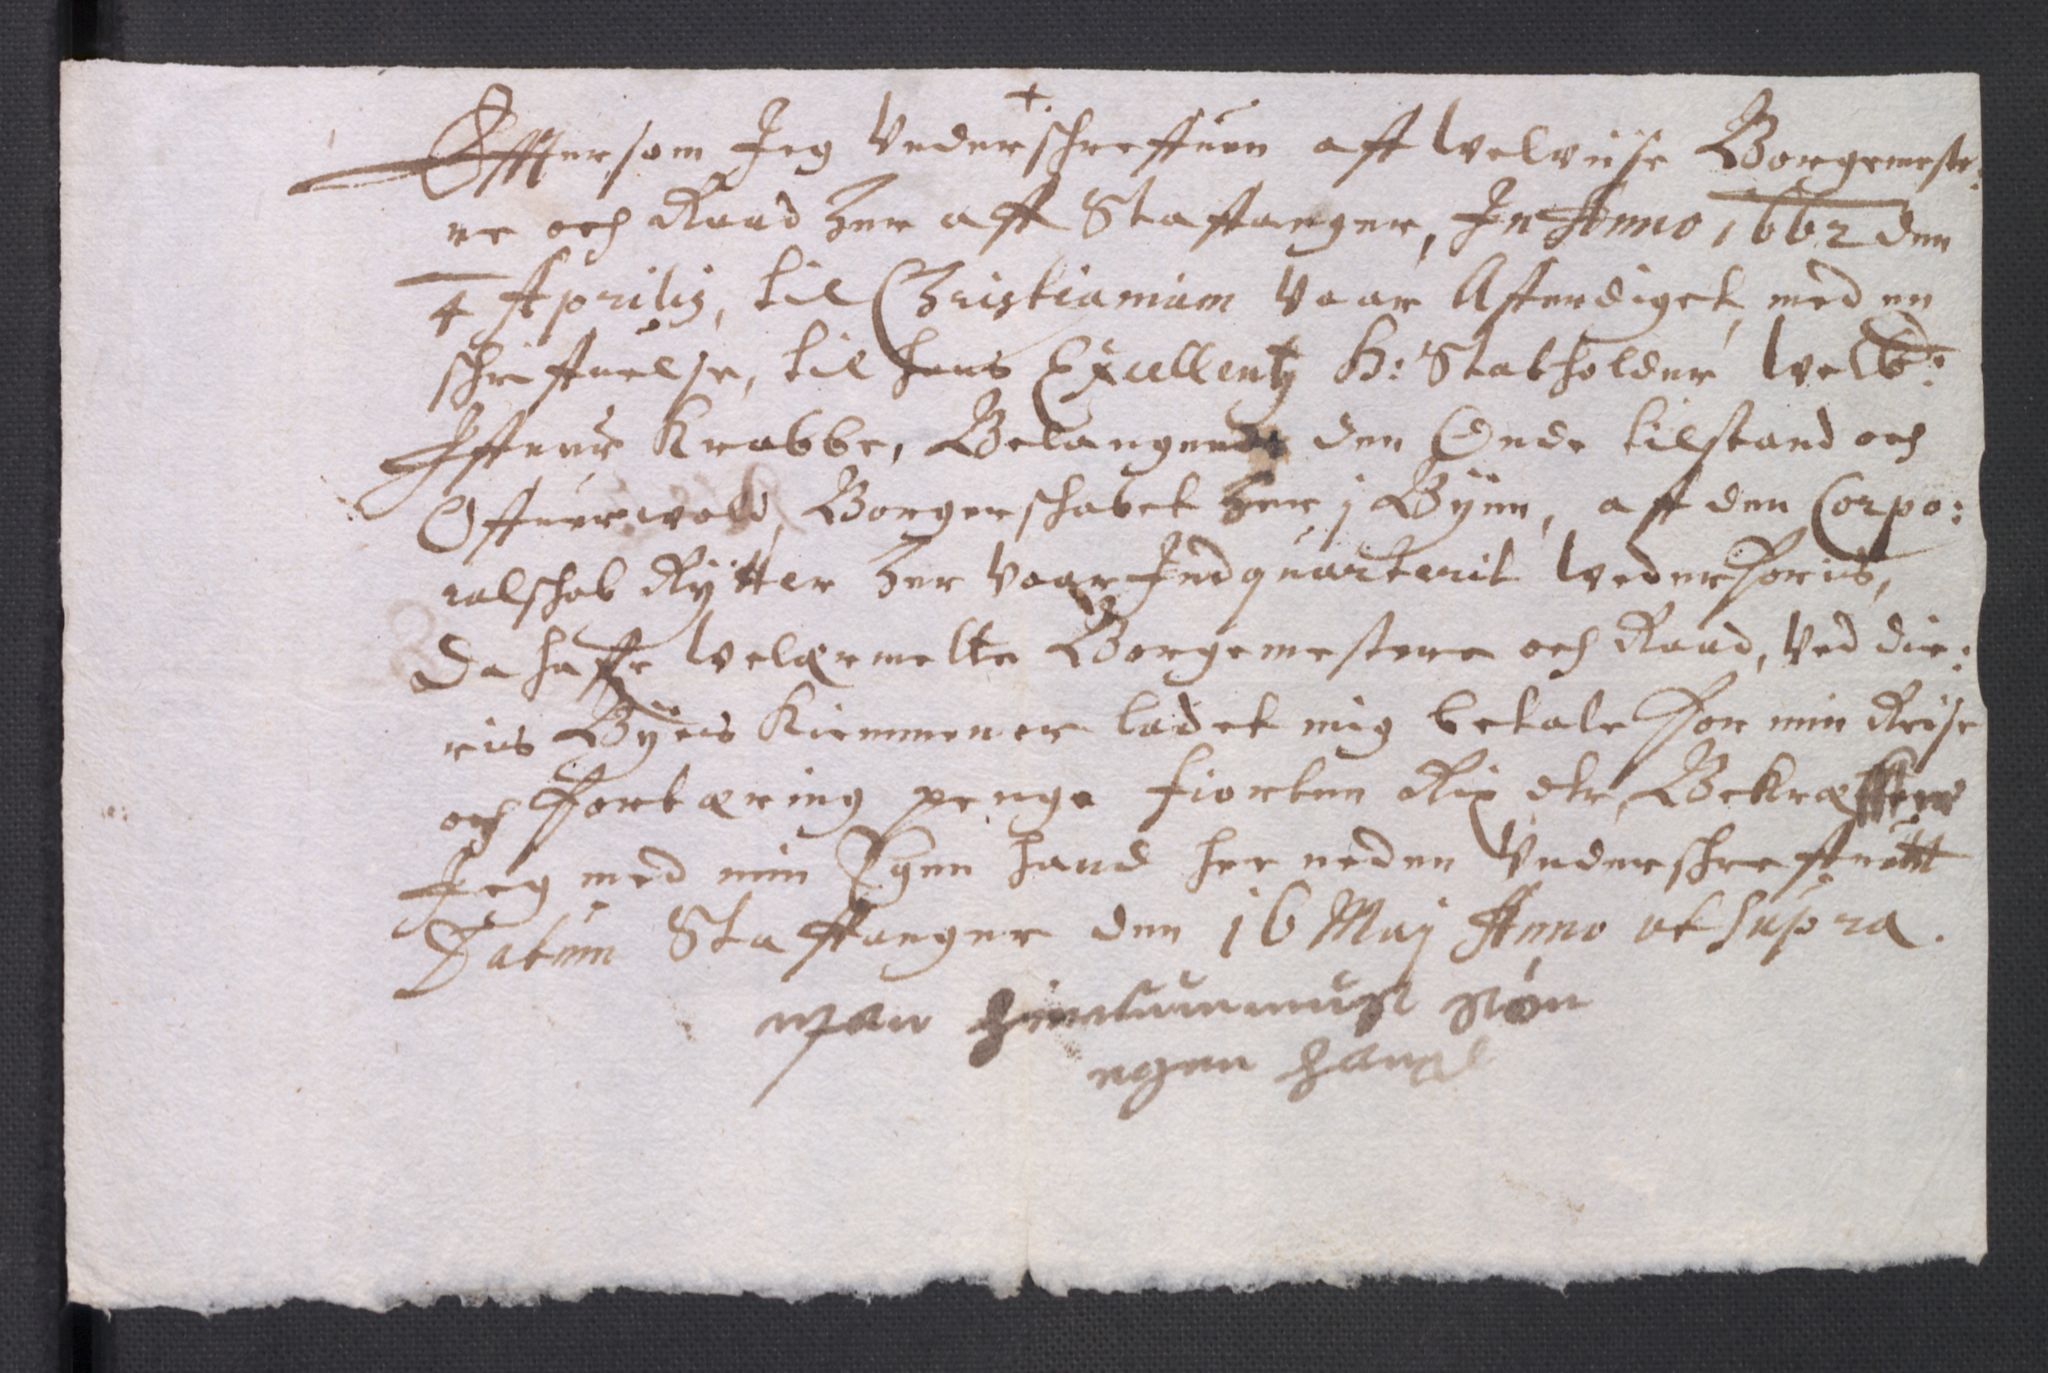 +.
Effttersom Jeg Underschreffuen aff Welviise Borgemeste:
re och Raad her aff Staffanger, In Anno 1662 den
4 Aprilis, til Christianiam vaar Afferdiget, med en
schriffuelse, til hans Excellentz H: Statholder Welb:
Iffuer Krabbe, Belangende den Onde tilstand och
Offuerwold, Borgerschabet her j Byen, aff den Corpo:
ralschab Rytter her vaar Indquarterit Wederforis,
Da haffr Welærmelte Borgemestere och Raad, ved die:
ris Byes Kiemmener ladet mig betale for min Reise
och fortæring penge fiorten Rix dlr, Bekræffter
Jeg med min Egen haand her neden Underschreffuett
Datum Staffanger den 16 Maij Anno ut supra.
egen hand